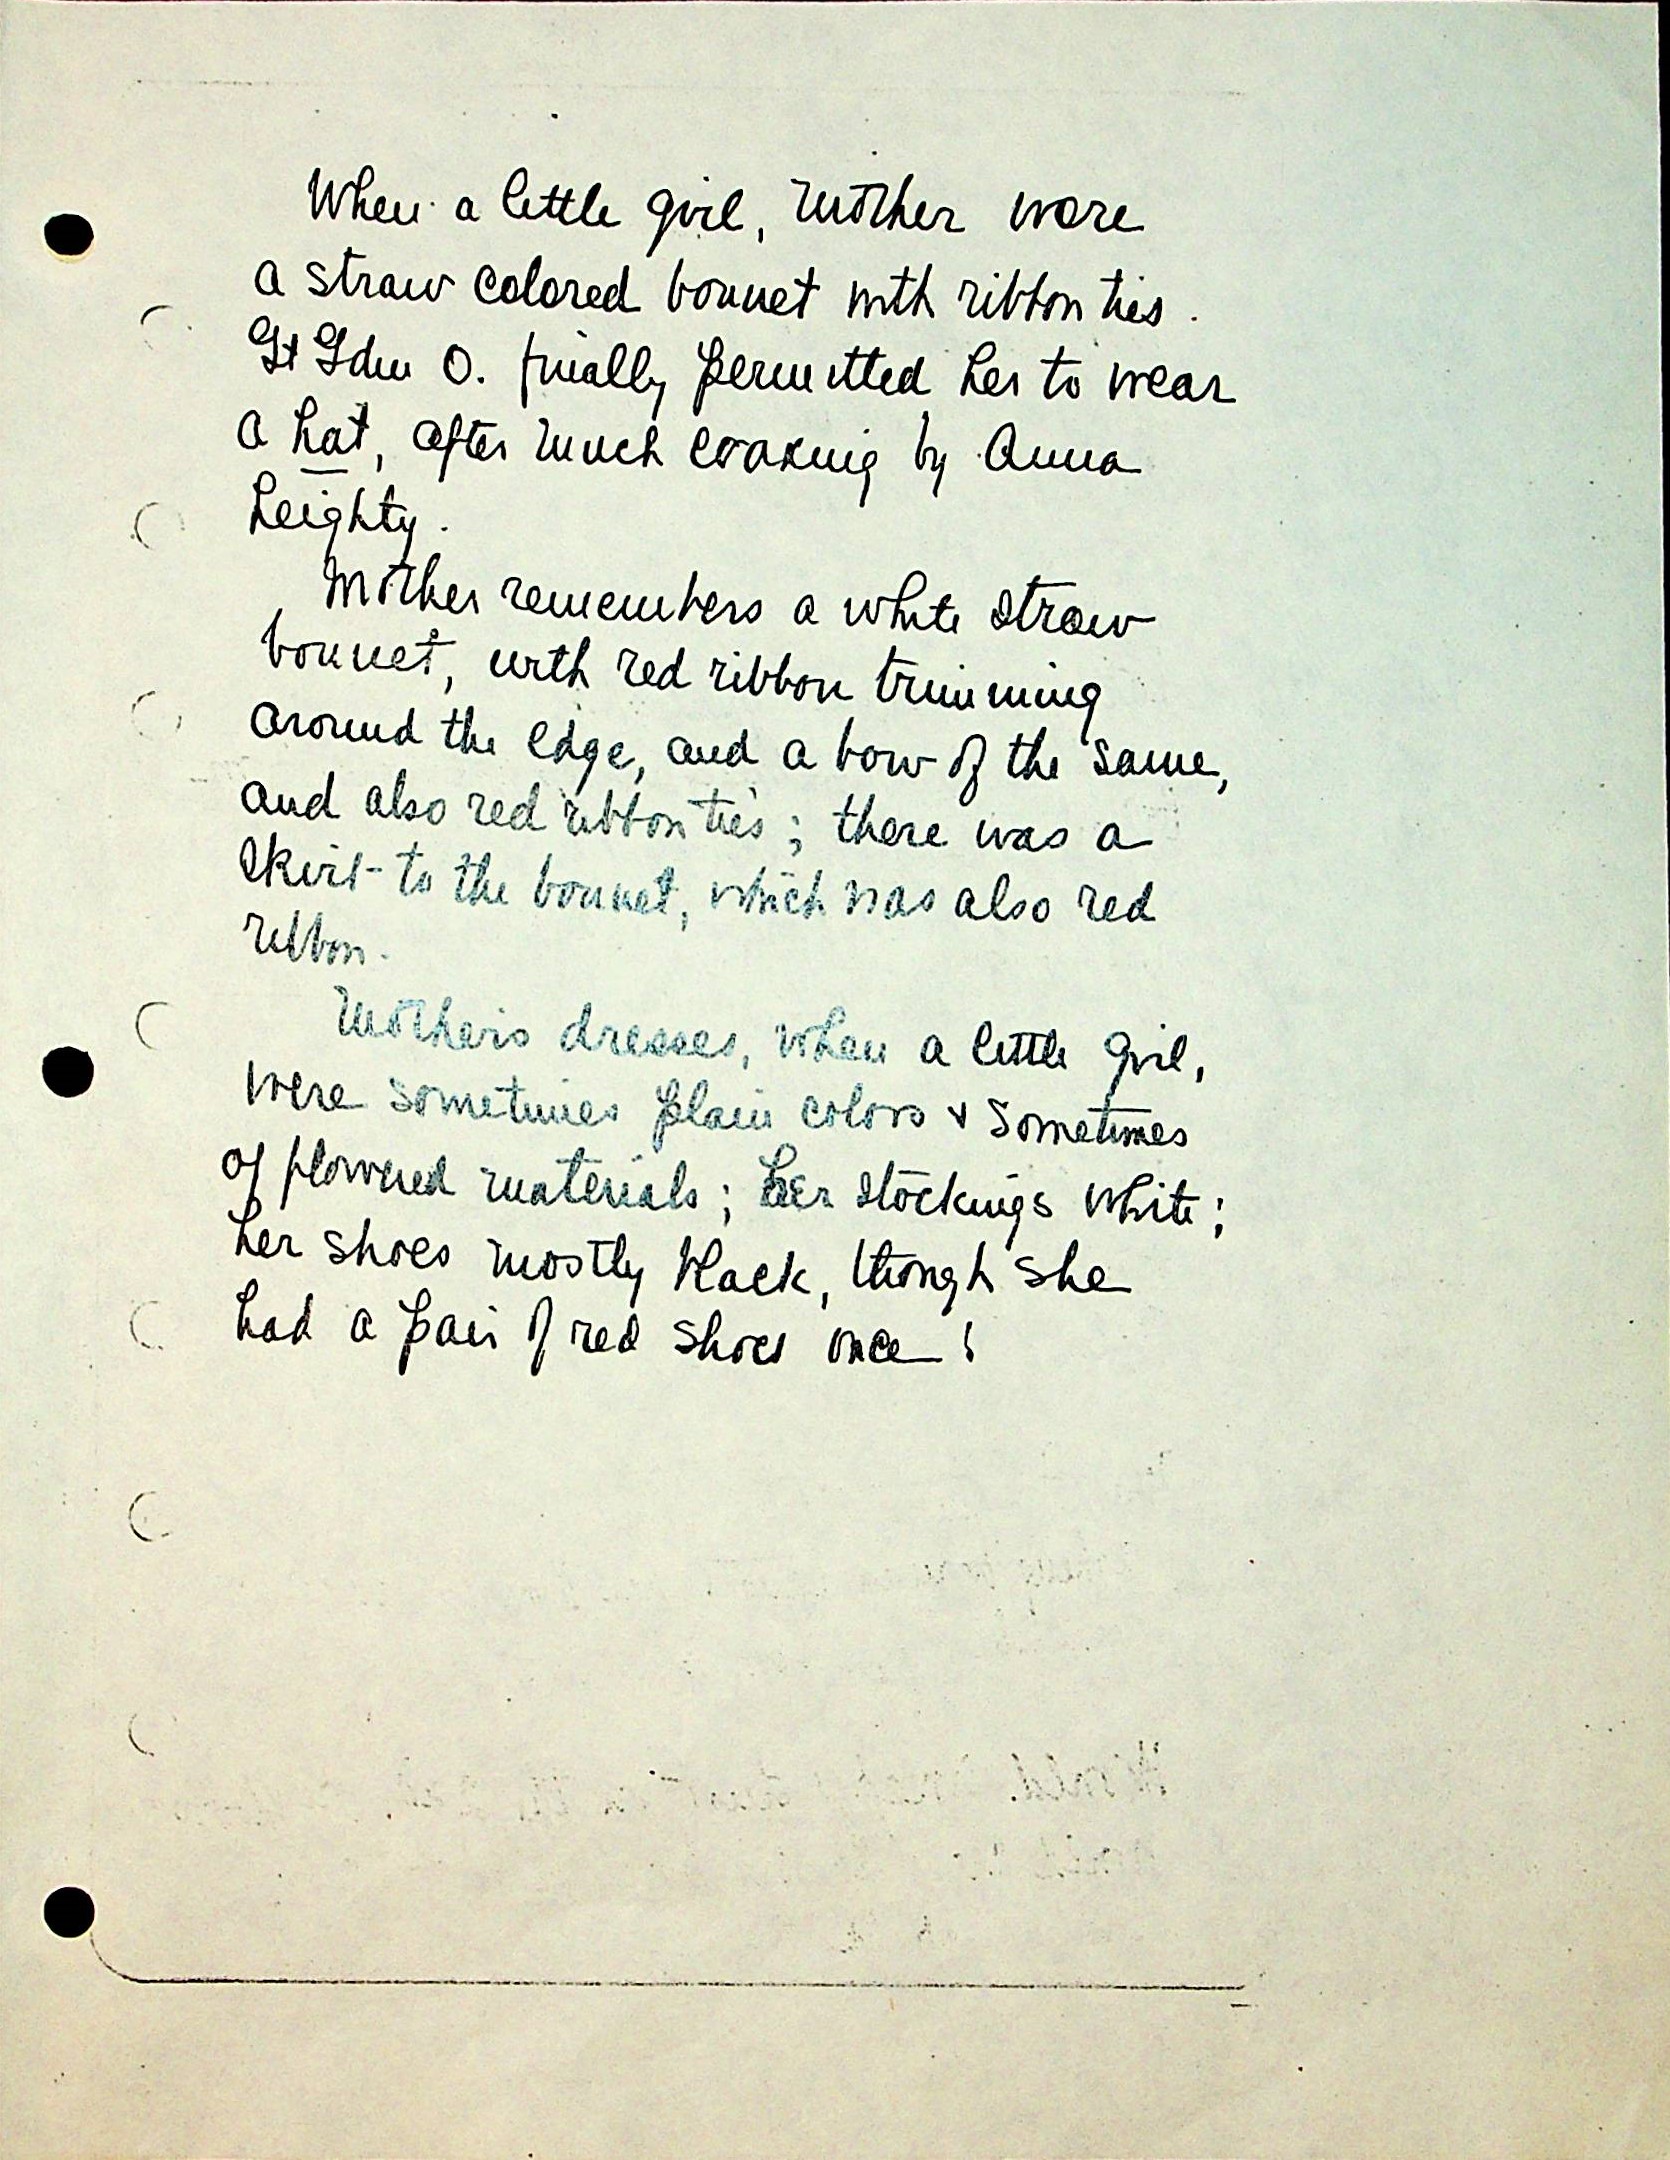 When a little girl, Mother wore
a straw colored bonnet with ribbon ties.
Gt Gdm O. finally permitted her to wear
a hat, after much coaxing by Anna
Leighty.
Mother remembers a white straw
bonnet, with red ribbon trimming
around the edge, and a bow of the same,
and also red ribbon ties; there was a
skirt to the bonnet, which was also red
ribbon.
Mother's dresses, when a little girl,
were sometimes plain colors & sometimes
of flowered materials; her stockings white;
her shoes mostly black, though she
had a pair of red shoes once!